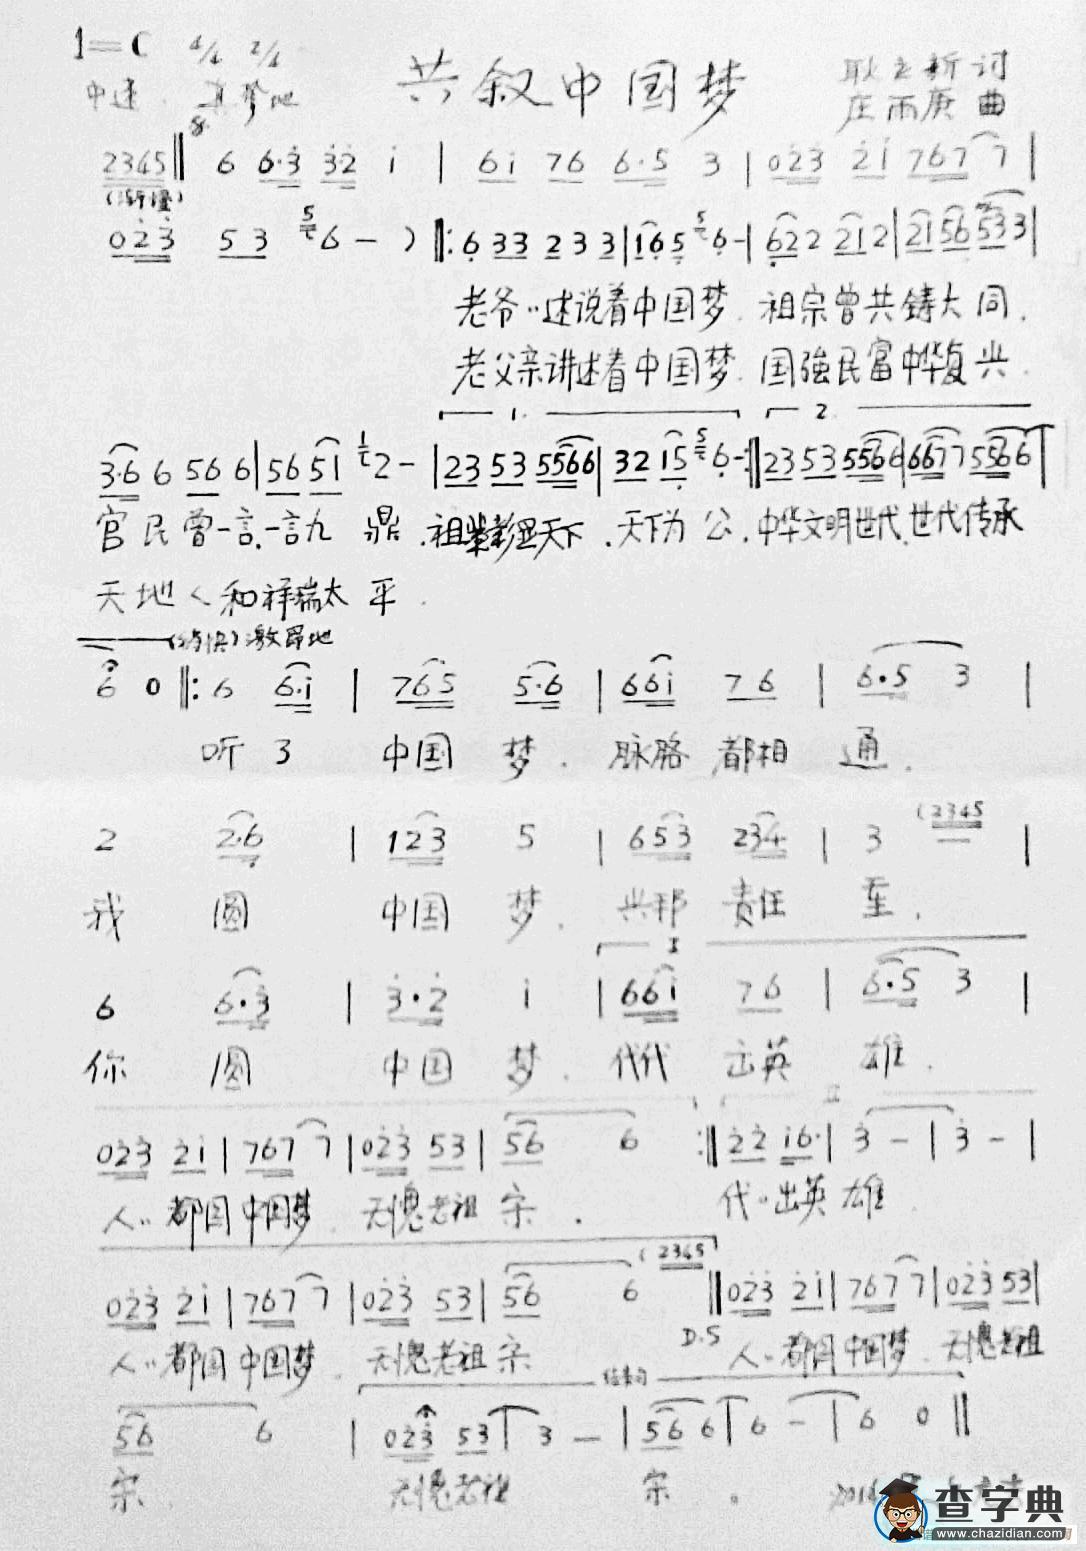 1=C 4/4 2/4 共叙中国梦 耿立新 词
中速 真挚地 庄雨庚 曲
2345 ‖ 6 6·3̇ 3̇·2̇ i | 6i 76 6·5 3 | 02̇3̇ 2̇i 767 7 |
(渐慢)
02̇3̇ 53 6 — ) ‖: 6 33 2 3 3 | 165 6 — | 622 212 | 2156 533 |
老爷〃述说着中国梦.祖宗曾共铸大同.
老父亲讲述着中国梦.国強民富中华复兴.
1. 2.
3·6 6 56 6 | 56 51 2 — | 23 53 5566 | 32 15 6 — :‖ 23 53 5566 | 6677 5566 |
官民曾一言.一言九鼎.祖辈 天下.天下为公.中华文明世代.世代传承
天地 和祥瑞太平.
(稍快)激昂地
6 0 ‖: 6 6·i | 765 5·6 | 66i 76 | 6·5 3 |
听了中国梦.脉胳都相通.
2 2·6 | 123 5 | 653 234 | 3 (2345 |
我圆中国梦.兴邦责任重.
I
6 6·3̇ | 3̇·2̇ i | 66i 76 | 6·5 3 |
你圆中国梦.代代出英雄.
II
02̇3̇ 2̇i | 767 7 | 02̇3̇ 53 | 56 6 :‖ 2̇2̇ i6· | 3̇ — | 3̇ — |
人〃都圆中国梦.无愧老祖宗. 代〃出英雄.
02̇3̇ 2̇i | 767 7 | 02̇3̇ 53 | 56 6 (2345 ‖ 02̇3̇ 2̇i | 767 7 | 02̇3̇ 53 |
D.S
人〃都圆中国梦.无愧老祖宗 人〃都圆中国梦.无愧老祖
结束句
56 6 | 02̇3̇ 53 3 — | 56 6 | 6 — | 6 0 ‖
宗. 无愧老祖宗.
查字典
www.chazidian.com